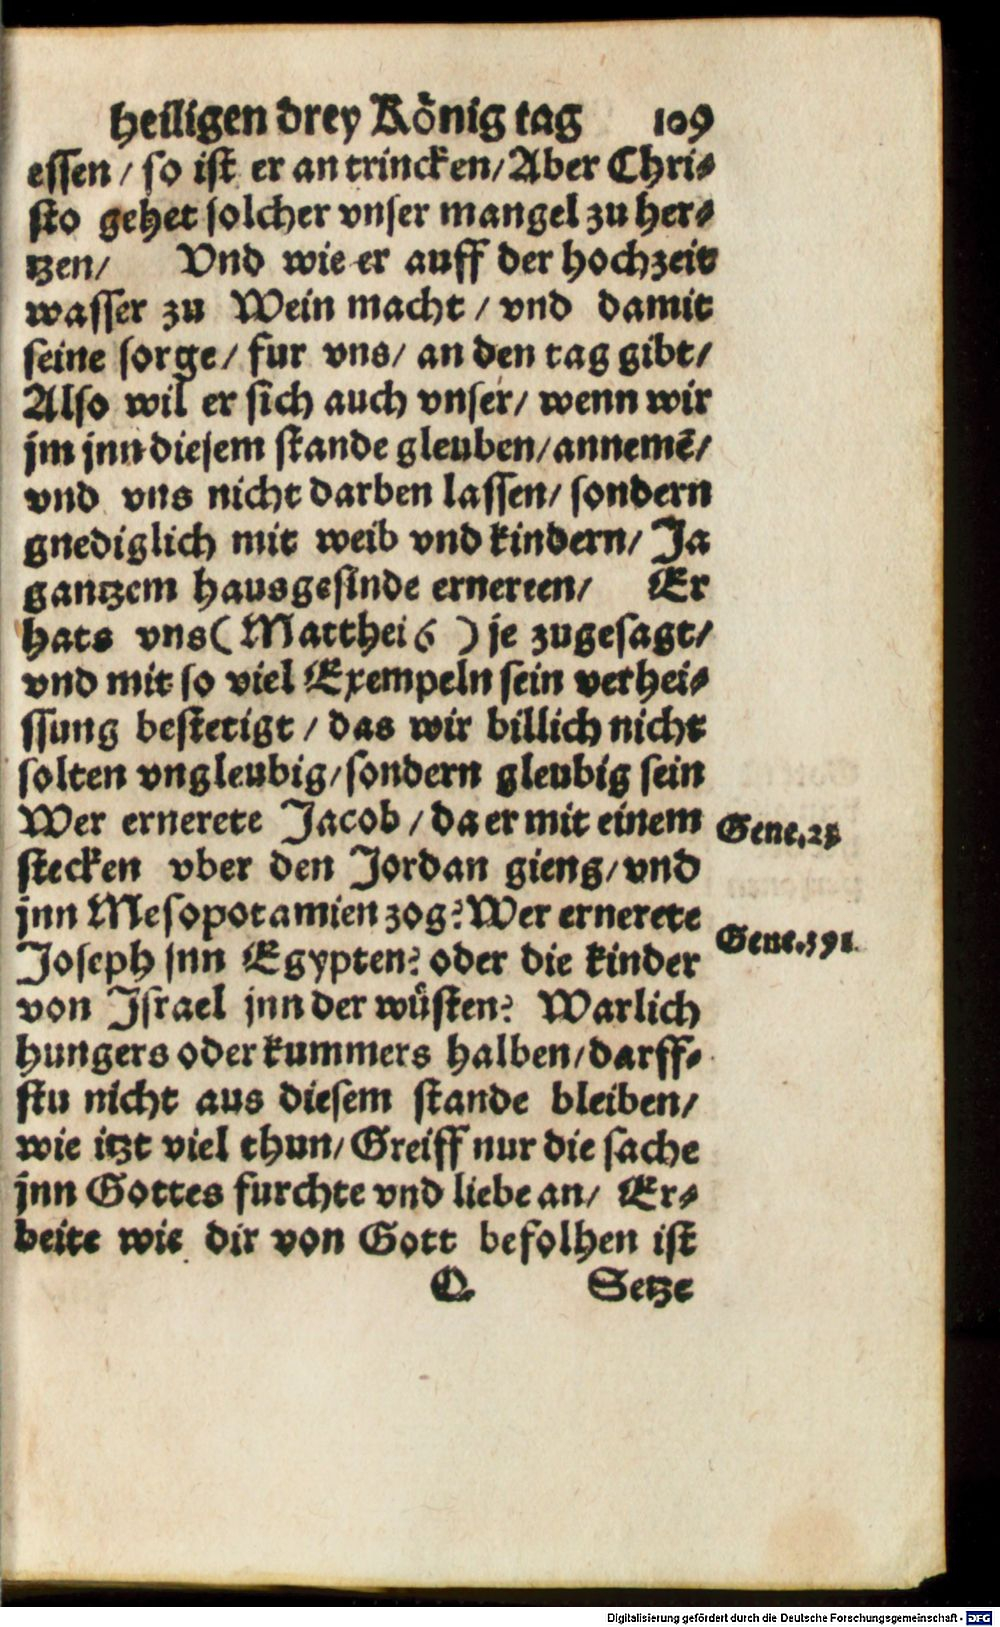 heiligen drey Koͤnig tag 109
essen / so ist er an trincken / Aber Chri⸗
sto gehet solcher vnser mangel zu her⸗
tzen / Vnd wie er auff der hochzeit
wasser zu Wein macht / vnd damit
seine sorge / fur vns / an den tag gibt /
Also wil er sich auch vnser / wenn wir
jm jnn diesem stande gleuben / annemē /
vnd vns nicht darben lassen / sondern
gnediglich mit weib vnd kindern / Ja
gantzem hausgesinde erneren / Er
hats vns ( Matthei 6 ) je zugesagt /
vnd mit so viel Exempeln sein verhei⸗
ssung bestetigt / das wir billich nicht
solten vngleubig / sondern gleubig sein
Wer ernerete Jacob / da er mit einem
Gene.28
stecken vber den Jordan gieng / vnd
jnn Mesopotamien zog? Wer ernerete
Gene.39
Joseph jnn Egypten? oder die kinder
von Jsrael jnn der wuͤsten? Warlich
hungers oder kummers halben / darff⸗
stu nicht aus diesem stande bleiben /
wie itzt viel thun / Greiff nur die sache
jnn Gottes furchte vnd liebe an / Er⸗
beite wie dir von Gott befolhen ist
O Setze
Digitalisierung gefördert durch die Deutsche Forschungsgemeinschaft - DFG